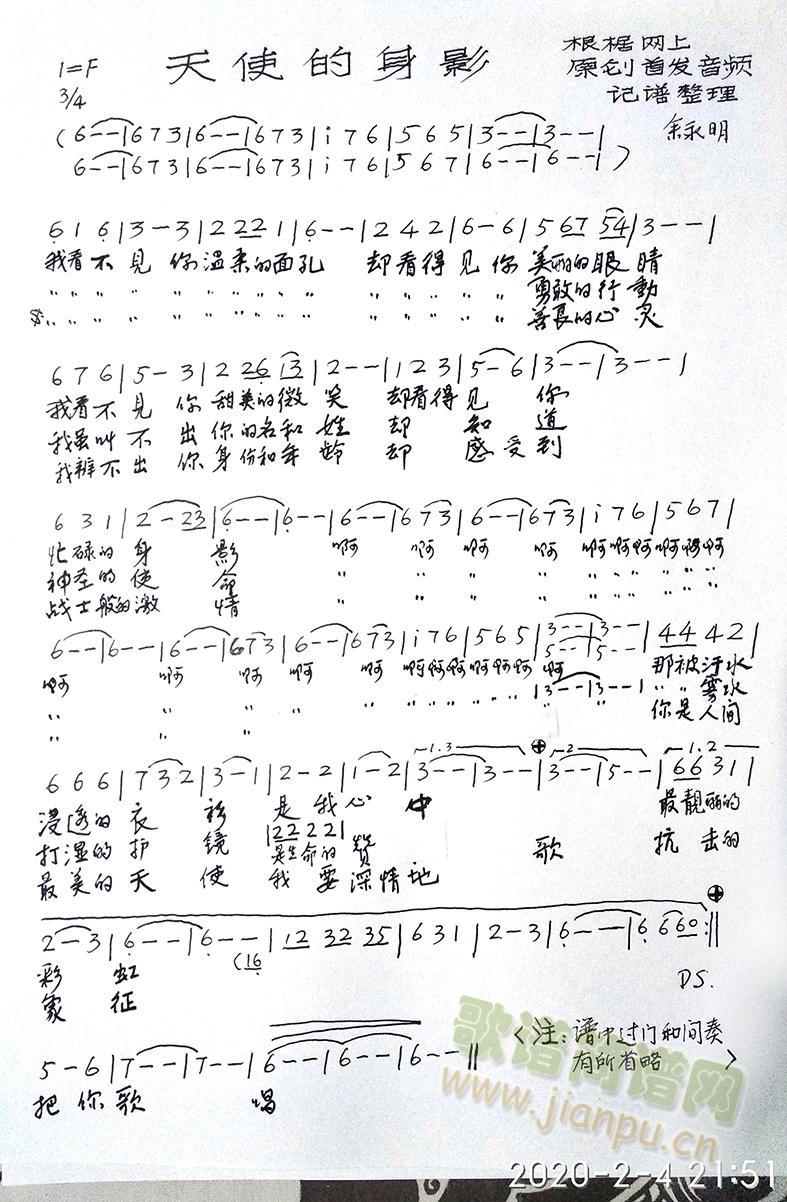 1=F
3/4
天使的身影
根据网上
原创首发音频
记谱整理
余永明
(6--|673|6--|673|i76|565|3--|3--|
6--|673|6--|673|i76|567|6--|6--|)
616|3-3|2221|6--|242|6-6|56754|3--|
我看不见你温柔的面孔 却看得见你美丽的眼睛
勇敢的行動
善良的心灵
676|5-3|22613|2--|123|5-6|3--|3--|
我看不见你甜美的微笑 却看得见你
我虽叫不出你的名和姓 却知道
我辨不出你身份和年龄 却感受到
631|2-23|6--|6--|6--|673|6--|673|i76|567|
忙碌的身影 啊 啊 啊 啊 啊啊啊啊啊啊
神圣的使命
战士般的激情
6--|6--|6--|673|6--|673|i76|565|3--|3--|4442|
5--|5--
啊 啊 啊 啊 啊 啊啊啊啊啊啊 啊 那被汗水
|3--|3--| 雾水
你是人间
666|732|3-1|2-2|1-2|3--|3--|3--|5--|6631|
1.3
2
1.2
浸透的衣衫是我心中 最靓丽的
打湿的护镜 |22221| 是生命的赞歌 抗击的
最美的天使我要深情地
2-3|6--|6--|123235|631|2-3|6--|6660:||
(16
彩虹
象征
D.S.
5-6|7--|7--|6--|6--|6--||
把你歌唱
<注:谱中过门和间奏
有所省略>
歌谱简谱网
www.jianpu.cn
2020-2-4 21:51